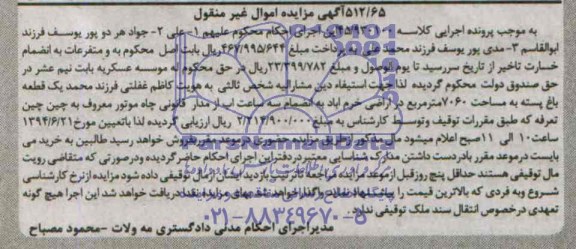 ۵۱۲/۶۵آگهی مزایده اموال غیر منقول
به موجب پرونده اجرایی کلاسه اجرای احکام محکوم علیهم ۱- علی ۲- جواد هر دو پور یوسف فرزند
ابوالقاسم ۳-مدی پور یوسف فرزند محمد علی پرداخت مبلغ ۴۶۷/۹۹۵/۶۴۴ریال بابت اصل محکوم به و متفرعات به انضمام
خسارت تاخیر از تاریخ سررسید تا یوم الوصول و مبلغ ۲۳/۳۹۹/۷۸۲ریال در حق محکوم له موسسه عسکریه بابت نیم عشر در
حق صندوق دولت محکوم گردیده لذا جهت استیفاء دین مشارالیه شخص ثالثی به هویت کاظم غفلتی فرزند محمد یک قطعه
باغ پسته به مساحت ۷۰۶۰مترمربع در اراضی خرم اباد به انضمام سه ساعت اب از مدار قانونی چاه موتور معروف به چین چین
تعرفه که طبق مقررات توقیف وتوسط کارشناس به مبلغ۲/۲۱۴/۹۰۰/۰۰۰ ریال ارزیابی گردیده لذا باتعیین مورخ۱۳۹۴/۶/۲۱
ساعت۱۰ الی ۱۱صبح اعلام میشود مال مذکور ازطریق مزایده حضوری درموعد مقرربفروش خواهد رسید طالبین به خرید می
بایست درموعد مقرر بادردست داشتن مدارک شناسایی معتبردردفتراین اجرای احکام حاضرگردیده ودرصورتی که متقاضی رویت
مال توقیفی هستند حداقل پنج روزقبل ازموعد مزایده مراجعه تا ترتیب بازدید ایشان ازمال توقیفی داده شود مزایده ازنرخ کارشناسی
شروع وبه فردی که بالاترین قیمت را پیشنهاد نماید واگذارخواهد شد بهای مزایده نقدا دریافت خواهد شد این اجرا هیچ گونه
تعهدی درخصوص انتقال سند ملک توقیفی ندارد.
مدیراجرای احکام مدنی دادگستری مه ولات -محمود مصباح
۰۲۱-۸۸۳۴۹۶۷۰-۵